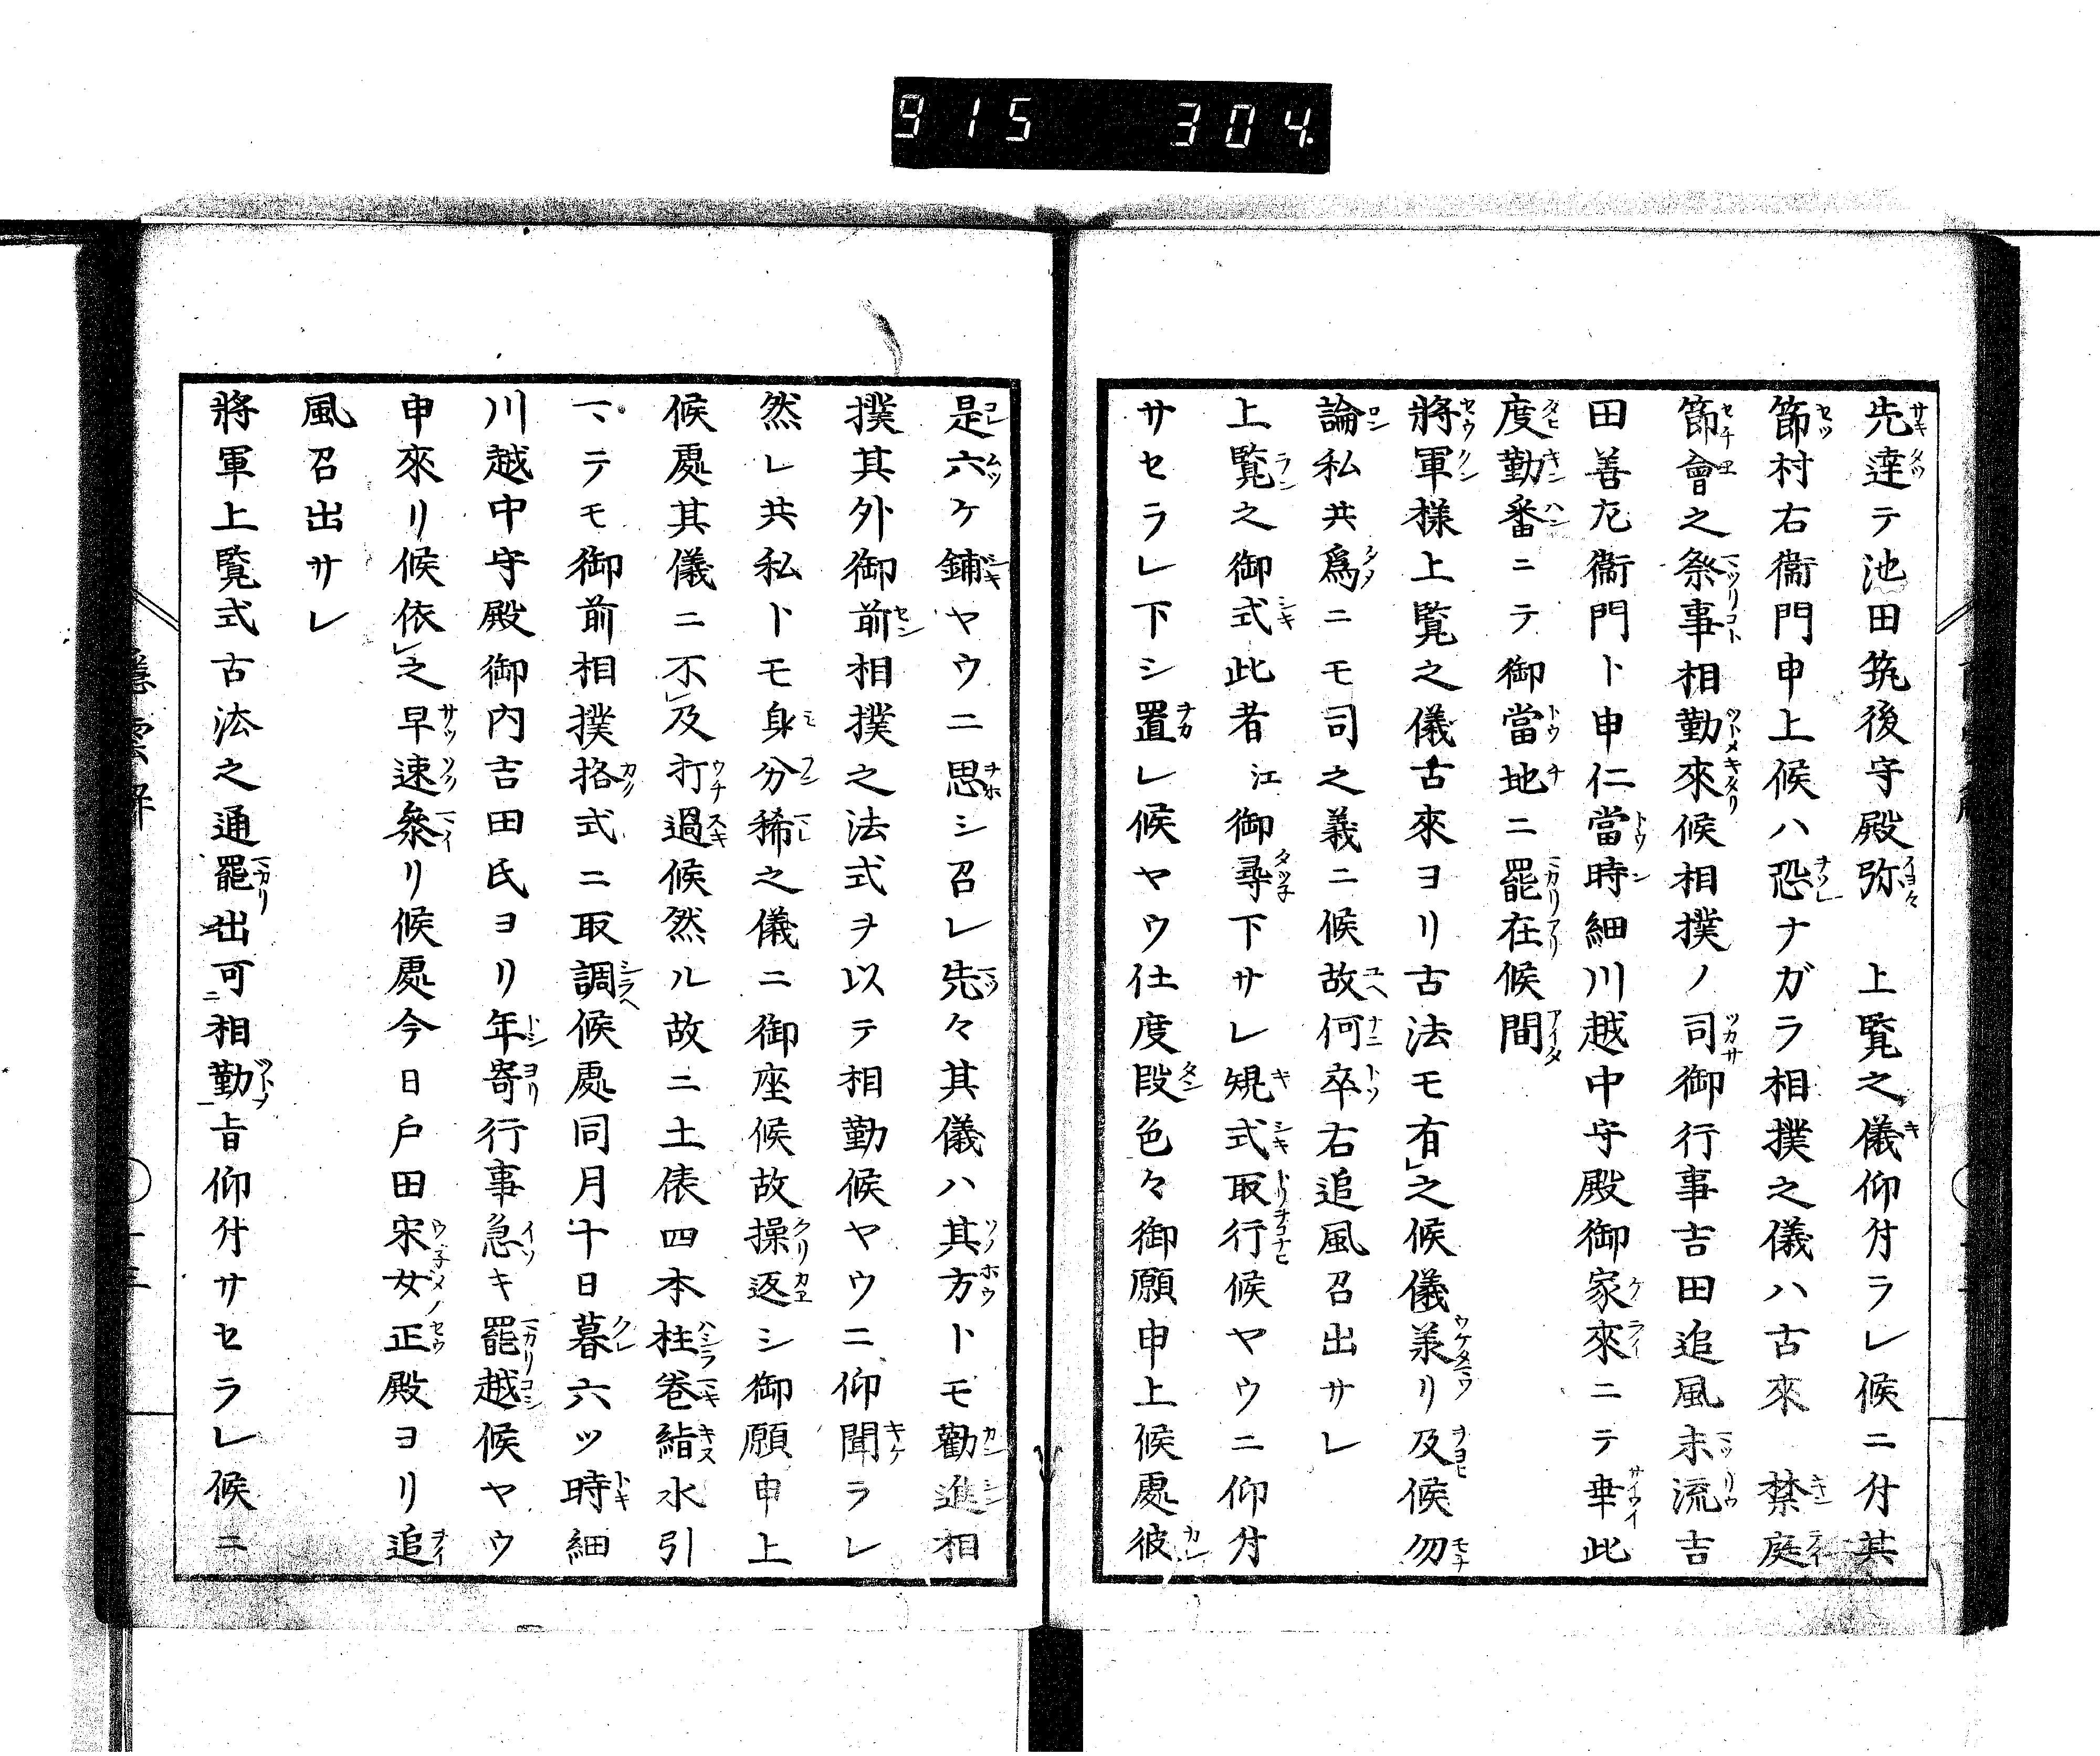 915 304.
先達テ池田筑後守殿弥　上覧之儀仰付ラレ候ニ付其
節村右衞門申上候ハ恐ナガラ相撲之儀ハ古來　禁庭
節會之祭事相勤來候相撲ノ司御行事吉田追風末流吉
田善左衞門ト申仁當時細川越中守殿御家來ニテ幸此
度勤番ニテ御當地ニ罷在候間
將軍様上覧之儀古來ヨリ古法モ有之候儀羕リ及候勿
論私共爲ニモ司之義ニ候故何卒右追風召出サレ
上覧之御式此者江御尋下サレ規式取行候ヤウニ仰付
サセラレ下シ置レ候ヤウ仕度段色々御願申上候處彼
是六ケ鋪ヤウニ思シ召レ先々其儀ハ其方トモ勸進相
撲其外御前相撲之法式ヲ以テ相勤候ヤウニ仰聞ラレ
然レ共私トモ身分稀之儀ニ御座候故操返シ御願申上
候處其儀ニ不及打過候然ル故ニ土俵四本柱巻絹水引
ニテモ御前相撲挌式ニ取調候處同月十日暮六ッ時細
川越中守殿御内吉田氏ヨリ年寄行事急キ罷越候ヤウ
申來リ候依之早速參リ候處今日戸田宋女正殿ヨリ追
風召出サレ
將軍上覧式古法之通罷出可相勤旨仰付サセラレ候ニ